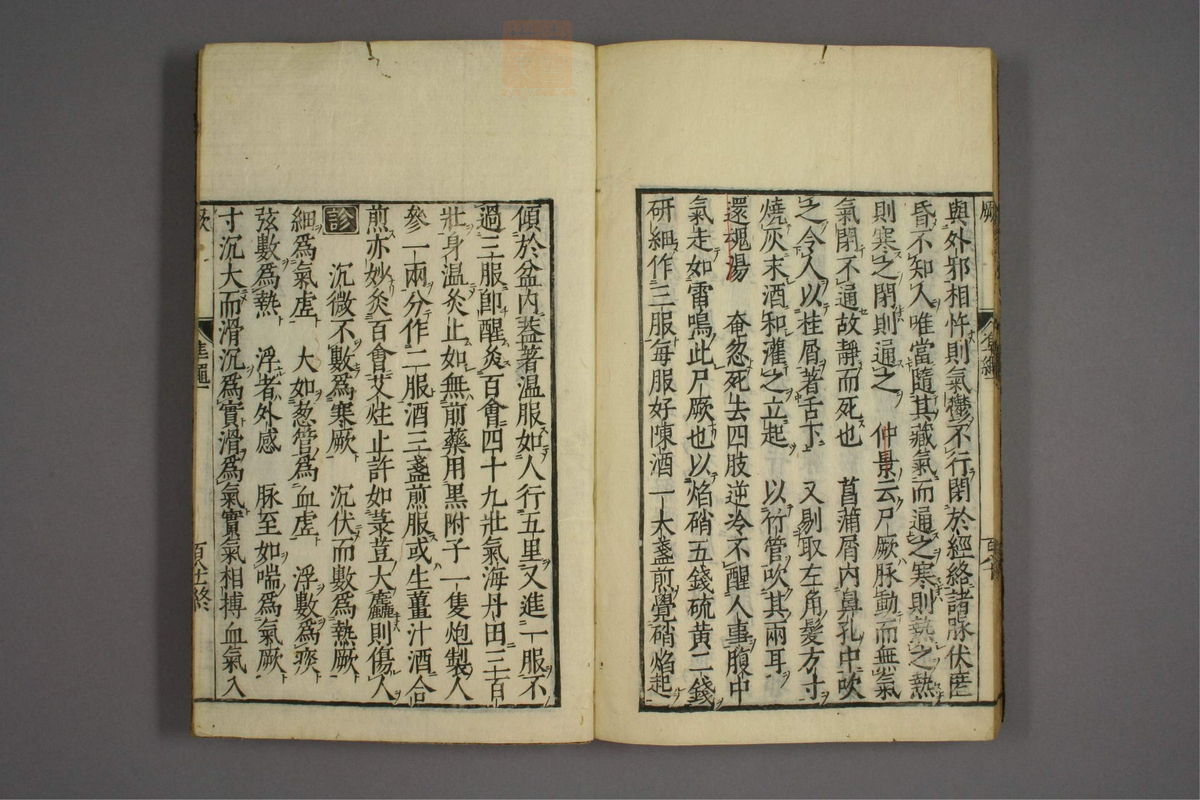 與外邪相忤則氣欝不行閉於經絡諸脉伏匿
昏不知人唯當隨其藏氣而通之寒則熱之熱
則寒之閉則通之　仲景云尸厥脉動而無氣
氣閉不通故靜而死也　菖蒲屑内鼻孔中吹
之令人以桂屑著舌下　又剔取左角髮方寸
燒灰末酒和灌之立起　以竹管吹其兩耳
還魂湯　奄忽死去四肢逆冷不醒人事腹中
氣走如雷鳴此尸厥也以焰硝五錢硫黄二錢
研細作三服每服好陳酒一大盞煎覺硝焰起
傾於盆内蓋著温服如人行五里又進一服不
過三服即醒灸百會四十九壯氣海丹田三百
壯身温灸止如無前藥用黑附子一隻炮製人
參一兩分作二服酒三盞煎服或生薑汁酒合
煎亦妙灸百會艾炷止許如菉荳大麤則傷人
診　沉微不數為寒厥　沉伏而數為熱厥
細為氣虚　大如葱管為血虚　浮數為痰
弦數為熱　浮者外感　脉至如喘為氣厥
寸沉大而滑沉為實滑為氣實氣相搏血氣入
厥